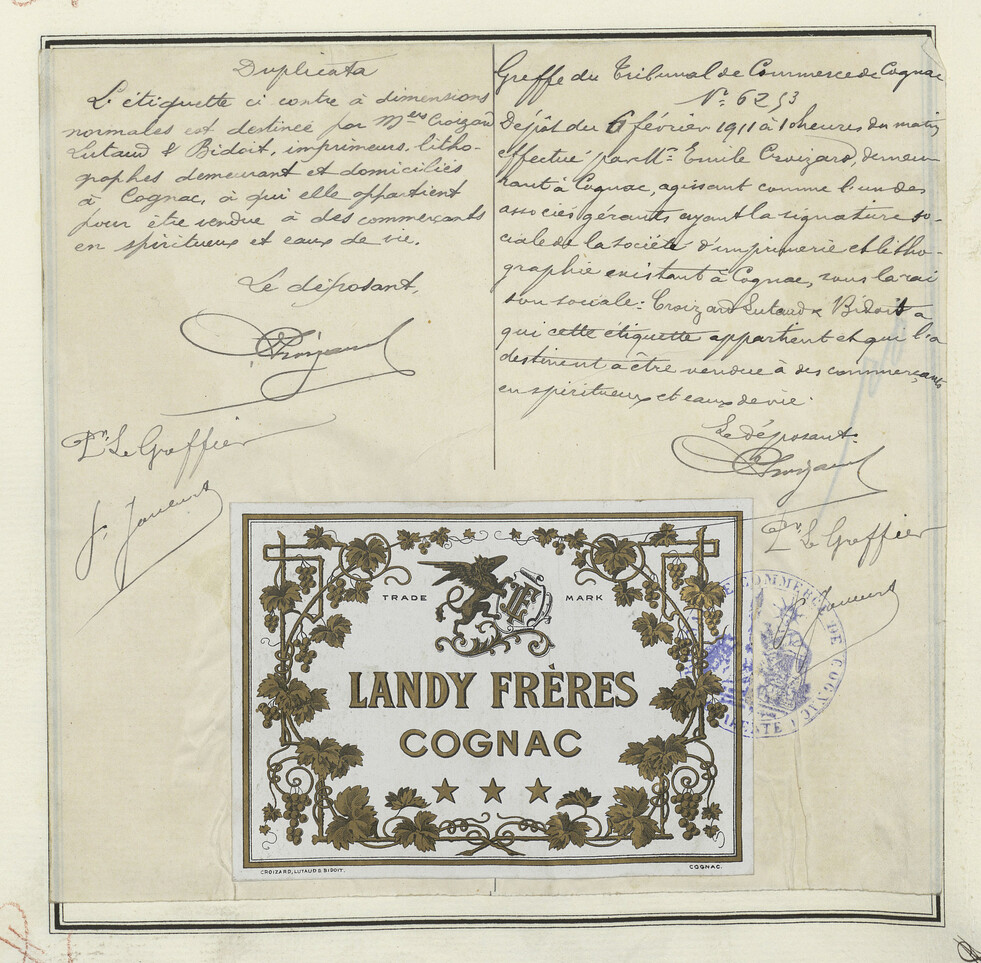 Duplicata
L'étiquette ci contre à dimensions
normales est destinée par Mers Croizard
Lutaud & Bidoit, imprimeurs, litho-
graphes demeurant et domiciliés
à Cognac, à qui elle appartient
pour être vendue à des commerçants
en spiritueux et eaux de vie.
Le déposant,
Croizard
Pr. Le Greffier
Greffe du Tribunal de Commerce de Cognac
No 6253
Dépôt du 6 février 1911 à 10 heures du matin
effectué par Mr. Emile Croizard, demeu
rant à Cognac, agissant comme l'un des
associés gérants ayant la signature so-
ciale de la société d'imprimerie et litho-
graphie existant à Cognac, sous la rai
son sociale: Croizard Lutaud & Bidoit à
qui cette étiquette appartient et qui l'a
destinent à être vendue à des commerçants
en spiritueux et eaux de vie.
Le déposant.
Croizard
Pr Le Greffier
TRADE MARK
LF
LANDY FRÈRES
COGNAC
CROIZARD, LUTAUD & BIDOIT.
COGNAC.
DE COMMERCE DE COGNAC